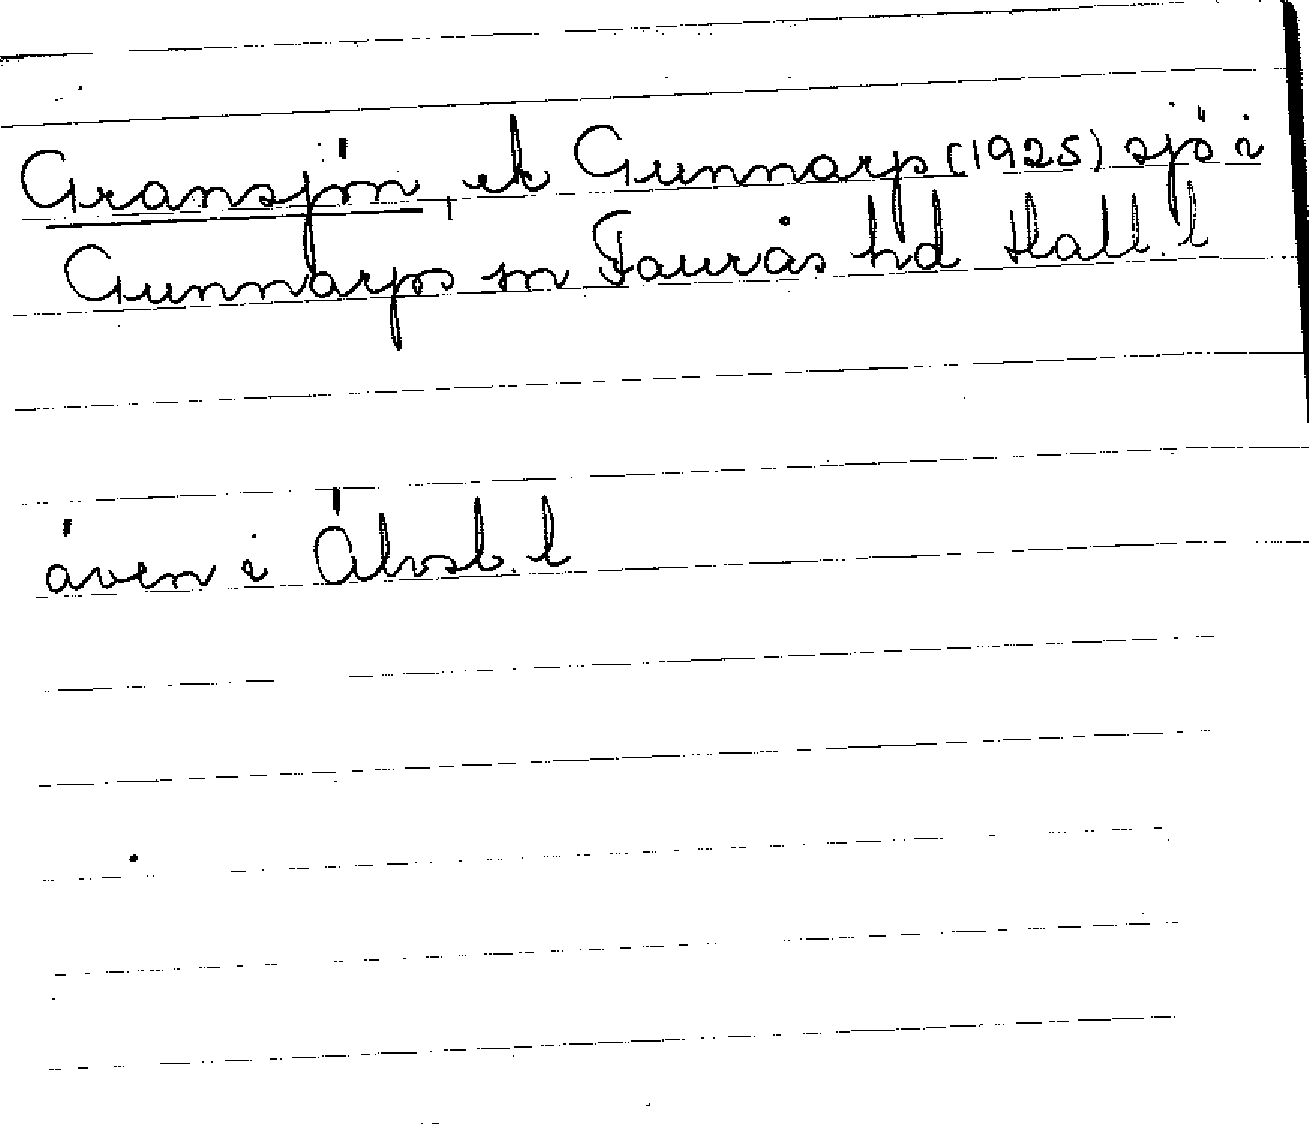 Gransjön, ek Gunnarp (1925) sjö i
Gunnarps sn Faurås hd Hall. l
även i Älvsb. l